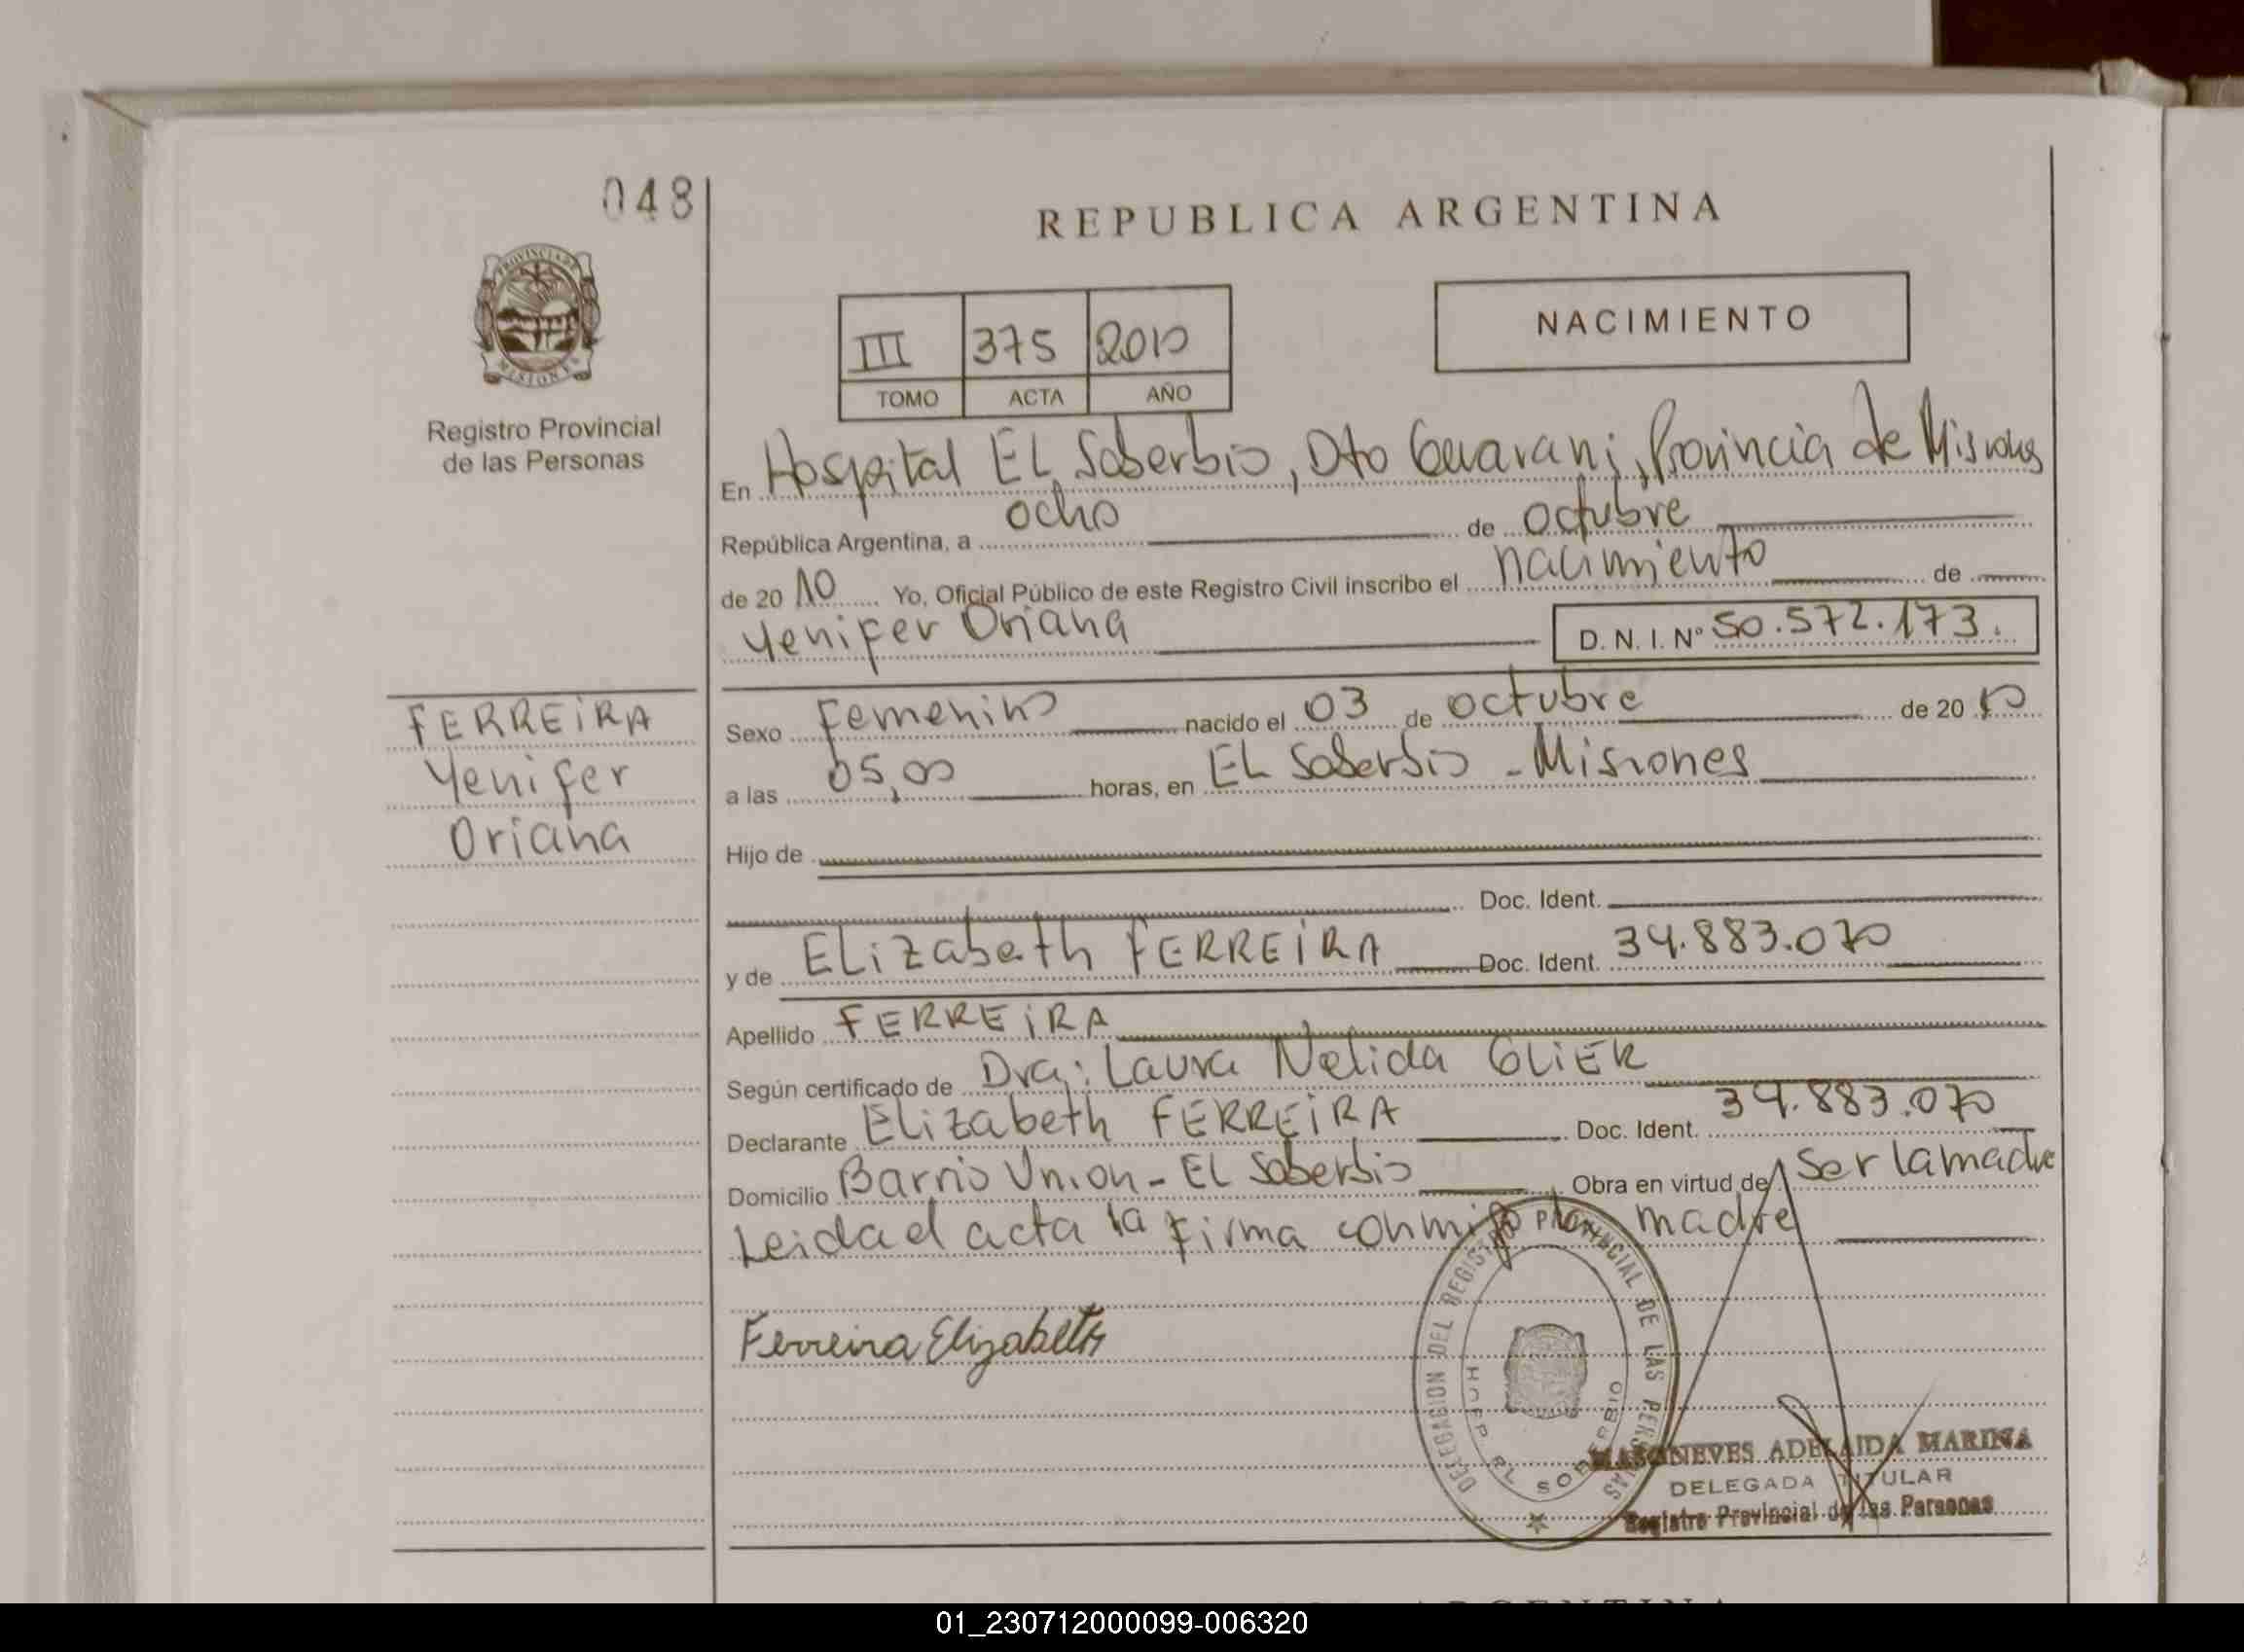 048
REPUBLICA ARGENTINA
PROVINCIA DE
MISIONES
Registro Provincial
de las Personas
III 375 2010
TOMO ACTA AÑO
NACIMIENTO
En Hospital EL Soberbio, Dto Guarani, Provincia de Misiones
República Argentina, a ocho de octubre
de 2010 Yo, Oficial Público de este Registro Civil inscribo el nacimiento de
Yenifer Oriana D. N. I. Nº 50.572.173.
FERREIRA
Yenifer
Oriana
Sexo Femenino nacido el 03 de octubre de 2010
a las 05,00 horas, en EL Soberbio - Misiones
Hijo de
Doc. Ident.
y de Elizabeth FERREIRA Doc. Ident. 34.883.070
Apellido FERREIRA
Según certificado de Dra: Laura Nelida GLiER
Declarante Elizabeth FERREIRA Doc. Ident. 34.883.070
Domicilio Barrio Union - EL Soberbio Obra en virtud de Ser la madre
Leida el acta la firma conmigo la madre
Ferreira Elizabeth
DELEGACION DEL REGISTRO PROVINCIAL DE LAS PERSONAS
EL SOBERBIO
NEVES ADELAIDA MARINA
DELEGADA TITULAR
Registro Provincial de las Personas
01_230712000099-006320